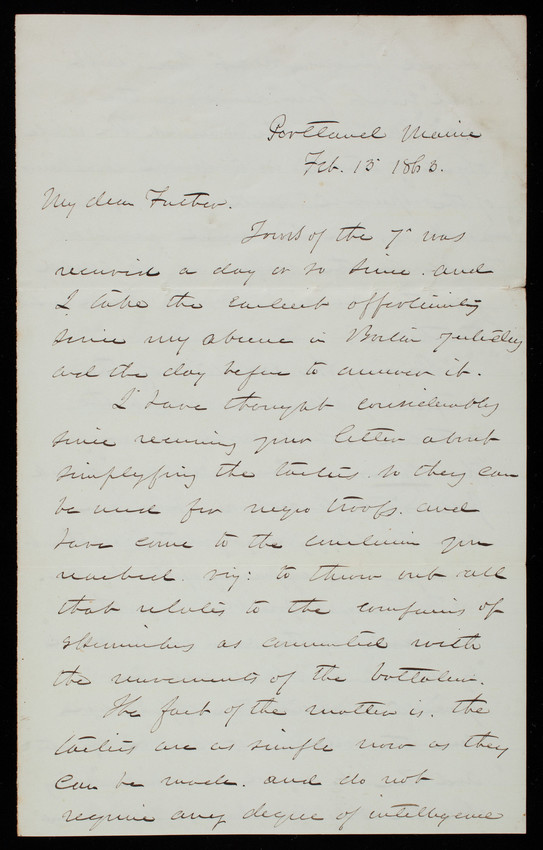 Portland Maine
Feb. 15 1863.
My dear Father.
Yours of the 7th was
received a day or so since. and
I take the earliest opportunity
since my absence in Boston yesterday
and the day before to answer it.
I have thought considerably
since receiving your letter about
simplyfing the tactics. so they can
be used for negro troops. and
have come to the conclusion you
reached. viz: to throw out all
that relates to the companies of
skirmishers as connected with
the movements of the battalion.
The fact of the matter is. the
tactics are as simple now as they
can be made. and do not
require any degree of intelligence